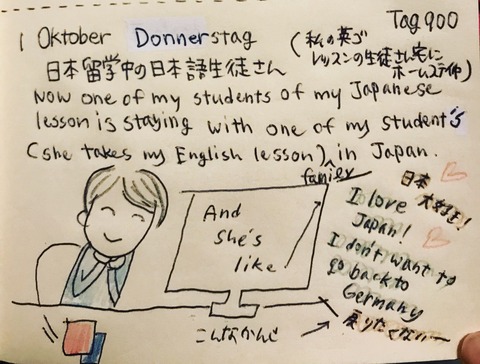 1 Oktober Donnerstag
Tag 900
(私の英ゴ
レッスンの生徒さん宅に
ホームステイ中)
日本留学中の日本語生徒さん
Now one of my students of my Japanese
lesson is staying with one of my student's
(she takes my English lesson) in Japan.
family
And
she's
like
日本
大好き!
I love
Japan!
I don't want to
go back to
Germany
戻りたくない〜
こんなかんじ